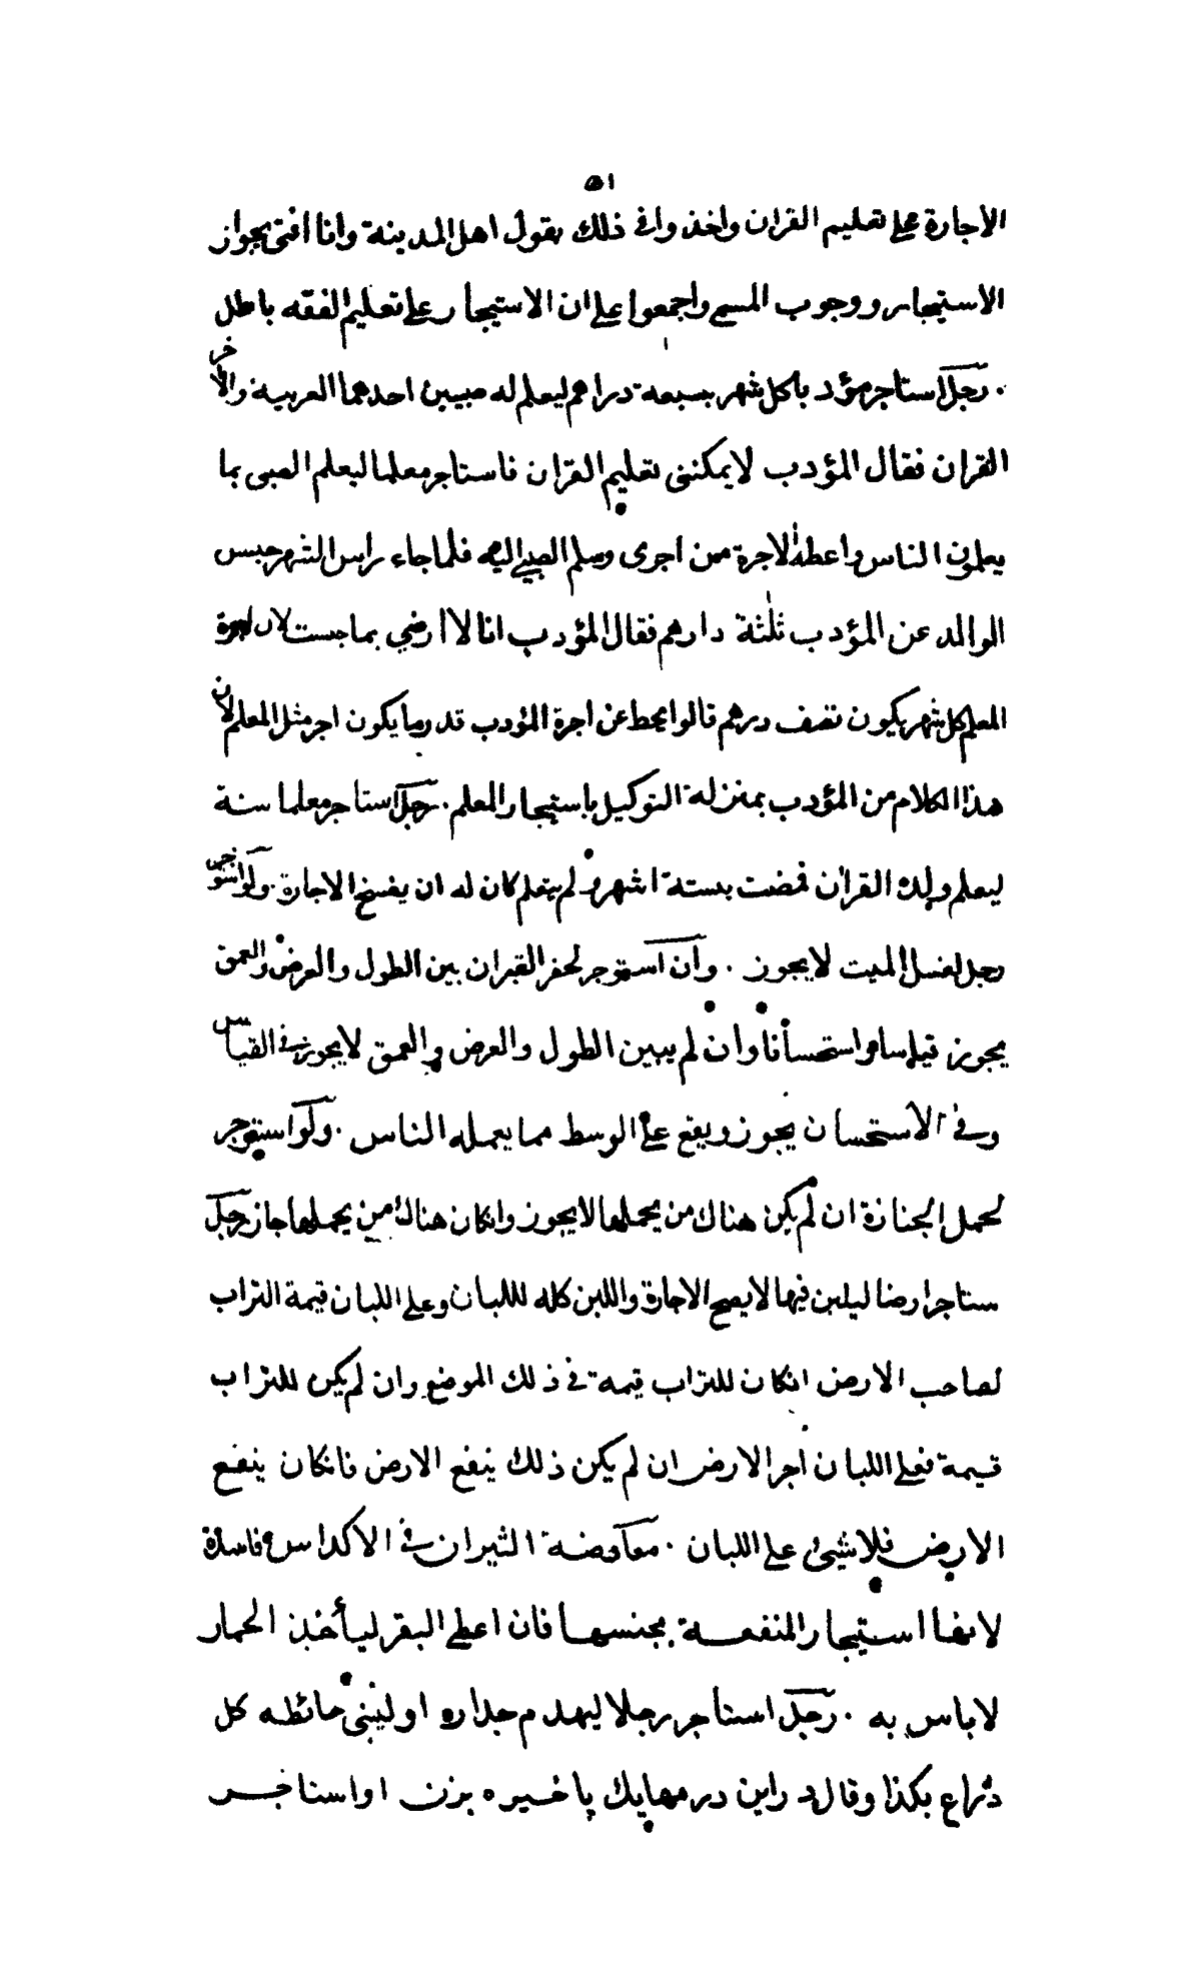 ٥١
الاجارة على تعليم القران واخذ وافى ذلك بقول اهل المدينة وانا افتى بجواز
الاستيجار ووجوب المسمى واجمعوا على ان الاستيجار على تعليم الفقه باطل
. رجل استاجر مؤدبا كل شهر بسبعة دراهم ليعلم له صبيين احدهما العربية والاخر
القران فقال المؤدب لا يمكننى تعليم القران فاستاجر معلما ليعلم الصبى بما
يعلمون الناس واعطه الاجرة من اجرى وسلم الصبى اليه فلما جاء راس الشهر حبس
الوالد عن المؤدب ثلثة دارهم فقال المؤدب انا لا ارضي بما حبست لان اجرة
المعلم كل شهر يكون نصف درهم قالوا يحط عن اجرة المؤدب قدر ما يكون اجر مثل المعلم لان
هذا الكلام من المؤدب بمنزلة التوكيل باستيجار المعلم . رجل استاجر معلما سنة
ليعلم ولده القران فمضت بستة اشهر ولم يتعلم كان له ان يفسخ الاجارة . ولو استوجر
رجل لغسل الميت لا يجوز . وان استوجر لحفر القبر ان بين الطول والعرض والعمق
يجوز قياسا واستحسانا وان لم يبين الطول والعرض والعمق لا يجوز في القياس
وفي الاستحسان يجوز ويقع على الوسط مما يعمله الناس . ولو استوجر
لحمل الجنازة ان لم يكن هناك من يحملها لا يجوز وانكان هناك من يحملها جاز رجل
ستاجر ارضا ليلبن فيها لا يصح الاجارة واللبن كله لللبان وعلى اللبان قيمة التراب
لصاحب الارض انكان للتراب قيمة في ذلك الموضع وان لم يكن للتراب
قيمة فعلى اللبان اجر الارض ان لم يكن ذلك ينفع الارض فانكان ينفع
الارض فلا شيئ على اللبان . معاوضة الثيران في الاكداس فاسدة
لانها استيجار المنفعة بجنسها فان اعطى البقر ليأخذ الحمار
لا باس به . رجل استاجر رجلا ليهدم جداره او ليبنى حائطه كل
ذراع بكذا وقال اين در مهايك پاخسيره بزن او استاجر